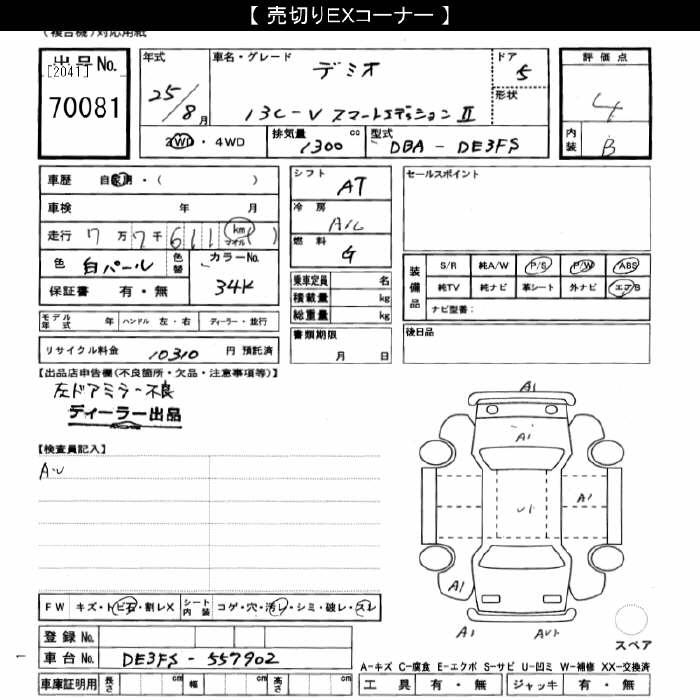 【 売切りEXコーナー 】
(複合機)対応用紙
出品No.
[2041]
70081
年式 25/8月
車名・グレード デミオ
13C-V スマートエディションⅡ
ドア 5
形状
評価点 4
内装 B
2WD・4WD
排気量 1300 cc
型式 DBA - DE3FS
車歴 自家用・( )
車検 年 月
走行 7万7千611 km マイル ( )
色 白パール 色替 カラーNo. 34K
保証書 有・無
シフト AT
冷房 A/C
燃料 G
乗車定員 名
積載量 kg
総重量 kg
書類期限
月 日
セールスポイント
装備品 S/R 純A/W P/S P/W ABS
純TV 純ナビ 革シート 外ナビ エアB
ナビ型番:
後日品
モデル年式 年 ハンドル 左・右 ディーラー・並行
リサイクル料金 10310 円 預託済
【出品店申告欄(不良箇所・欠品・注意事項等)】
左ドアミラー不良
ディーラー出品
【検査員記入】
A・U
A1
A1
U1
A1
A1
A1
AU1
FW キズ・トビ石・割レX シート内装 コゲ・穴・汚レ・シミ・破レ・スレ
登録No.
車台No. DE3FS - 557902
車庫証明用 長さ cm 幅 cm 高さ cm
スペア
A-キズ C-腐食 E-エクボ S-サビ U-凹ミ W-補修 XX-交換済
工具 有・無 ジャッキ 有・無